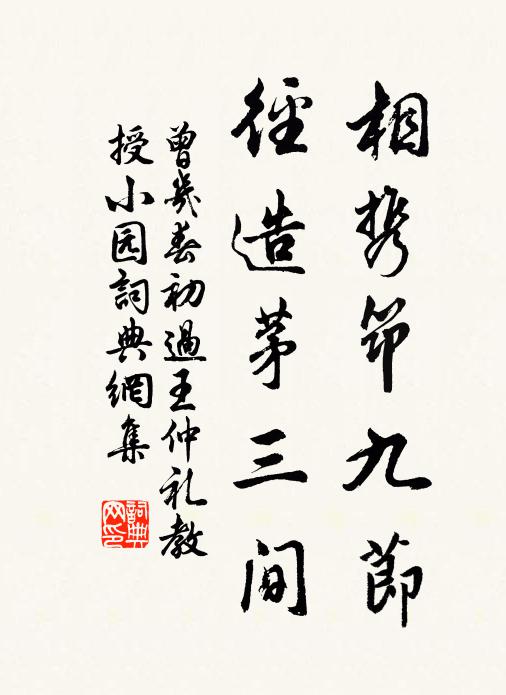 相携筇九節
徑造茅三間
曾幾春初過王仲礼教
授小园詞典網集
詞典网印